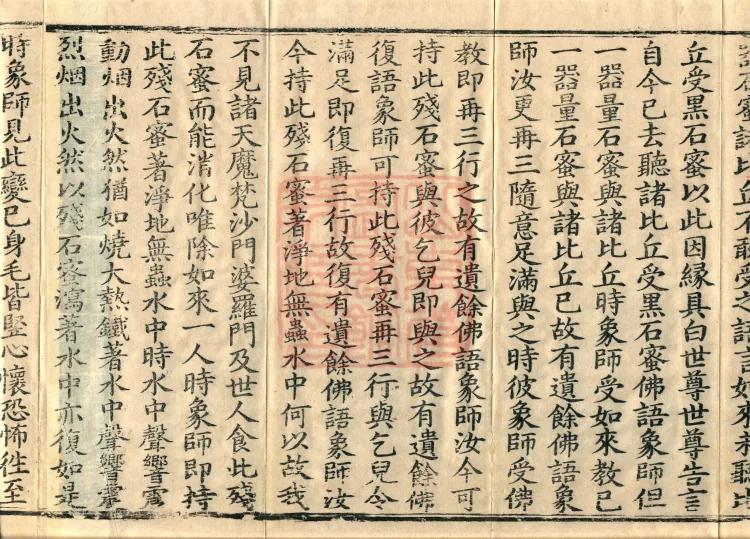 石蜜諸比丘不敢受之語言如來未聽比
丘受黑石蜜以此因緣具白世尊世尊告言
自今已去聽諸比丘受黑石蜜佛語象師但
一器量石蜜與諸比丘時象師受如來教已
一器量石蜜與諸比丘已故有遺餘佛語象
師汝更再三隨意足滿與之時彼象師受佛
教即再三行之故有遺餘佛語象師汝今可
持此殘石蜜與彼乞兒即與之故有遺餘佛
復語象師可持此殘石蜜再三行與乞兒令
滿足即復再三行故復有遺餘佛語象師汝
今持此殘石蜜著淨地無蟲水中何以故我
不見諸天魔梵沙門婆羅門及世人食此殘
石蜜而能消化唯除如來一人時象師即持
此殘石蜜著淨地無蟲水中時水中聲響震
動烟出火然猶如燒大熱鐵著水中聲響震
烈烟出火然以殘石蜜瀉著水中亦復如是
時象師見此變已身毛皆豎心懷恐怖往至